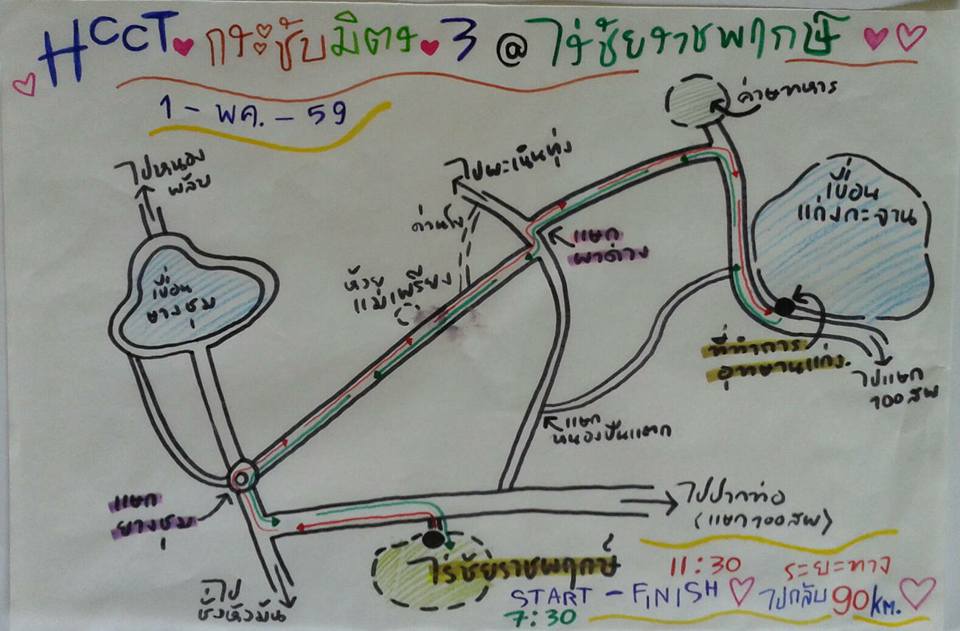 HCCT กระชับมิตร 3 @ ไร่ชัยราชพฤกษ์
1 - พค. - 59
ค่ายทหาร
ไปหนอง
พลับ
ไปพะเนินทุ่ง
ด่านโง
เขื่อน
แก่งกระจาน
แยก
ผาด่าง
ห้วย
แม่เพรียง
เขื่อน
ยางชุม
ที่ทำการ
อุทยานแก่ง.
ไปแยก
100 ศพ
แยก
หนองปืนแตก
แยก
ยางชุม
ไปปากท่อ
(แยก 100 ศพ)
ไร่ชัยราชพฤกษ์
ไป
ชั่งหัวมัน
11:30 ระยะทาง
START - FINISH ไปกลับ 90 KM.
7:30